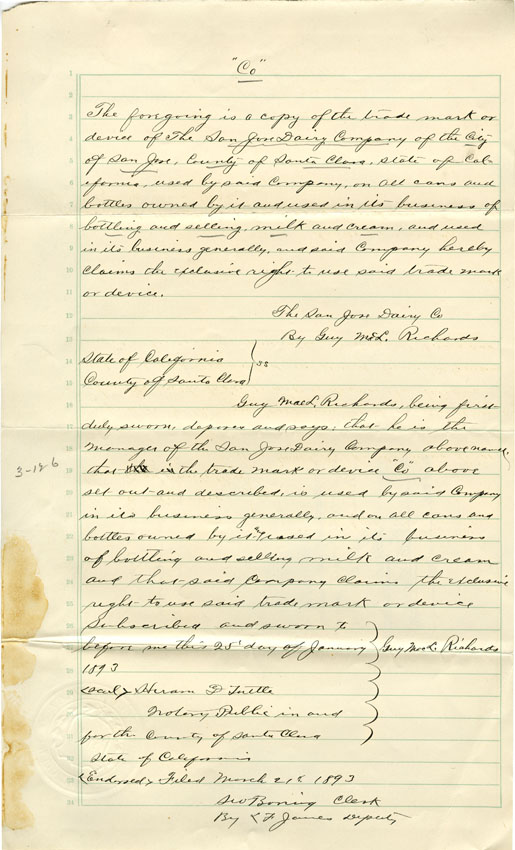 "Co"
The foregoing is a copy of the trade mark or
device of The San Jose Dairy Company of the City
of San Jose, County of Santa Clara, State of Cal-
ifornia, used by said Company, on all cans and
bottles owned by it and used in its business of
bottling and selling, milk and cream, and used
in its business generally, and said Company hereby
claims the exclusive right to use said trade mark
or device.
The San Jose Dairy Co
By Guy McL. Richards
State of California
County of Santa Clara } SS
Guy MacL. Richards, being first
duly sworn, deposes and says: that he is the
manager of the San Jose Dairy Company above named,
that the trade mark or device "Co" above
set out and described, is used by said Company
in its business generally, and on all cans and
bottles owned by it & used in its business
of bottling and selling milk and cream
and that said Company claims the exclusive
right to use said trade mark or device
Subscribed and sworn to
before me this 25' day of January } Guy McL. Richards
1893
<Seal> Hiram D Tuttle
Notary Public in and
for the County of Santa Clara
State of California
<Endorsed> Filed March 21st 1893
Boring Clerk
By James Deputy
3-18-6
1
2
3
4
5
6
7
8
9
10
11
12
13
14
15
16
17
18
19
20
21
22
23
24
25
26